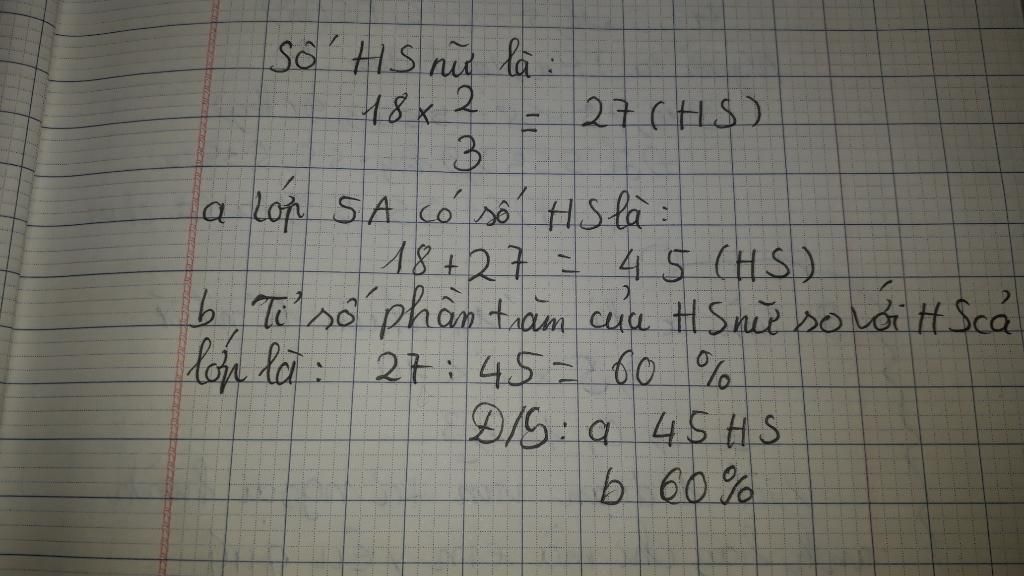 Số HS nữ là:
18 x 2/3 = 27 (HS)
a lớp 5A có số HS là:
18 + 27 = 45 (HS)
b Tỉ số phần trăm của HS nữ so với HS cả
lớp là: 27 : 45 = 60 %
Đ/S: a 45 HS
b 60%